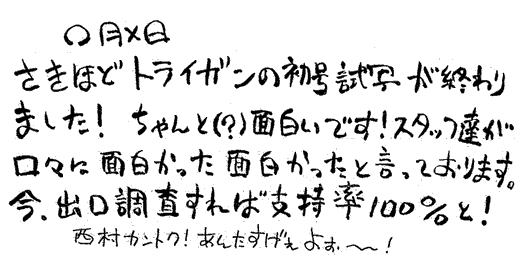 〇月×日
さきほどトライガンの初号試写が終わり
ました! ちゃんと(?)面白いです!スタッフ達が
口々に面白かった面白かったと言っております。
今、出口調査すれば支持率100%と!
西村カントク!あんたすげぇよぉ〜〜!